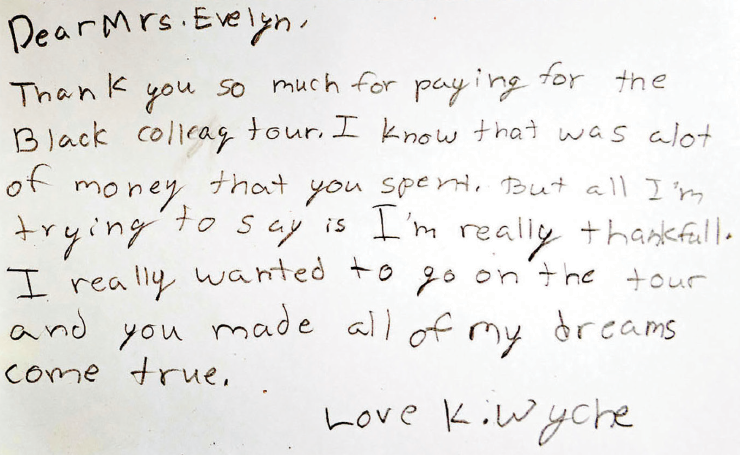 Dear Mrs. Evelyn,
Thank you so much for paying for the
Black colleag tour. I know that was alot
of money that you spent. But all I'm
trying to say is I'm really thankfull.
I really wanted to go on the tour
and you made all of my dreams
come true.
Love K. Wyche